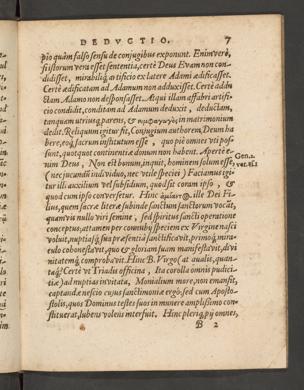 DEDVCTIO. 7
pio quàm falso sensu de conjugibus exponunt. Enimverò,
si istorum vera esset sententia, certè Deus Evam non con-
didisset, mirabiliq́ artificio ex latere Adami ædificasset.
Certè ædificatam ad Adamum non adduxisset. Certè addu
ctam Adamo non desponsasset. Atqui illam affabrè artifi-
cio condidit, conditam ad Adamum deduxit, deductam,
tanquam utriusq́ parens, & in matrimonium
dedit. Reliquum igitur fit, Conjugium authorem, Deum ha
bere, eoq́ sacrum institutum esse, quo pie omnes uti pos-
sunt, quotquot continentiæ donum non habent. Apertè e-
nim Deus, Non est bonum, inquit, hominem solum esse,
Gen. 2.
( nec jucundū individuo, nec utile speciei ) Faciamus igi-
ver. 18
tur illi auxilium vel subsidium, quod sit coram ipso, &
quod cum ipso conversetur. Hinc ille Dei Fi-
lius, quem sacræ literæ subinde sanctum sanctorum vocāt,
quamvis nullo viri semine, sed spiritus sancti operatione
conceptus, attamen per connubij speciem ex Virgine nasci
voluit, nuptiasq́ sua præsentia sanctificavit, primoq́ mira-
culo cohonestavit, quo & gloriam suam manifestavit, divi
nitatemq́ comprobavit. Hinc B. Virgo( at qualis, quan-
taq́?) Certè vt Triadis officina, Ita corolla omnis pudici-
tiæ ) ad nuptias invitata, Monialium more, non emansit,
captandæ nescio cujus sanctimoniæ ergò, sed cum Aposto-
stolis, quos Dominus testes suos in munere amplissimo con-
stituerat, lubens volens interfuit. Hinc pleriq́ pij omnes,
B 2